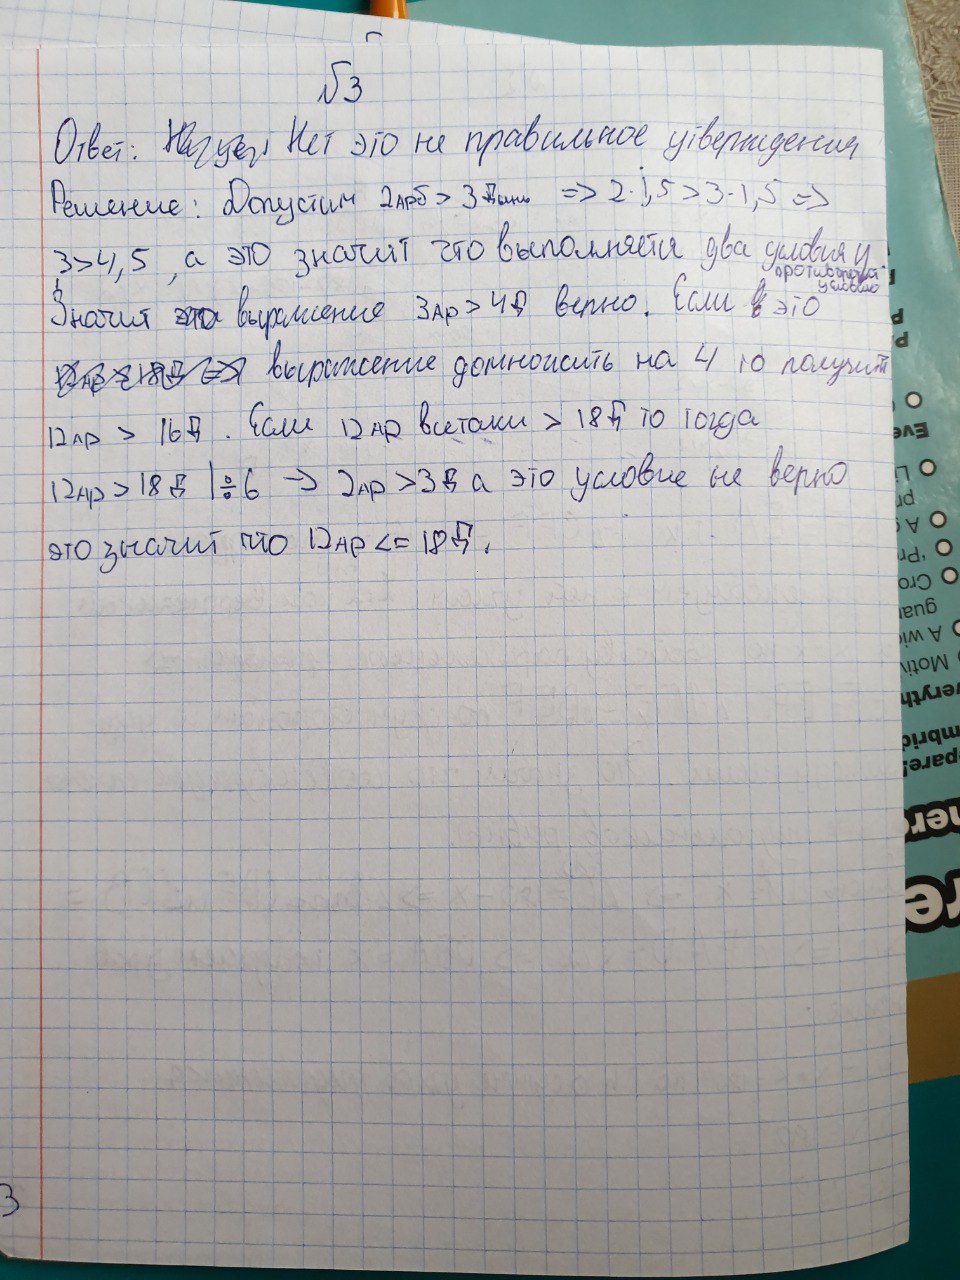 №3
Ответ: Нет это не правильное утверждения
Решение: Допустим 2арб > 3дынь => 2·1,5 > 3·1,5 =>
3>4,5, а это значит что выполняется два условия и
противоречат
условию
Значит это выражение 3ар > 4д верно. Если это
выражение домножить на 4 то получит
12ар > 16д. Если 12ар всетаки > 18д то тогда
12ар > 18д |÷6 → 2ар > 3д а это условие не верно
это значит что 12ар <= 18д.
3
Motiv
A wic
guar
Cro
'Pr
A g
pr
Li
Eve